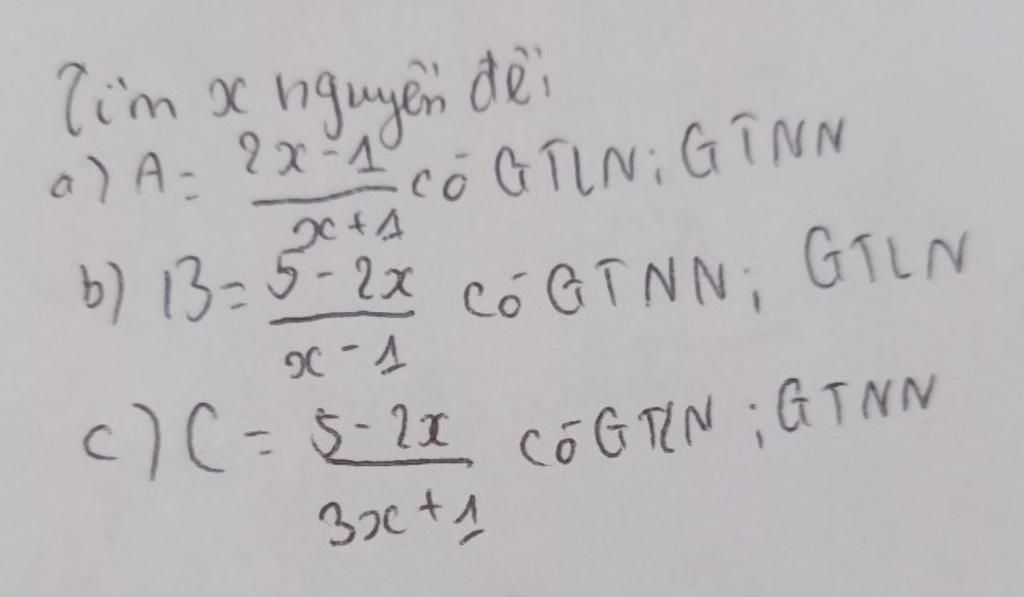 Tìm x nguyên để:
a) A = \frac{2x-1}{x+1} có GTLN; GTNN
b) B = \frac{5-2x}{x-1} có GTNN; GTLN
c) C = \frac{5-2x}{3x+1} có GTLN; GTNN